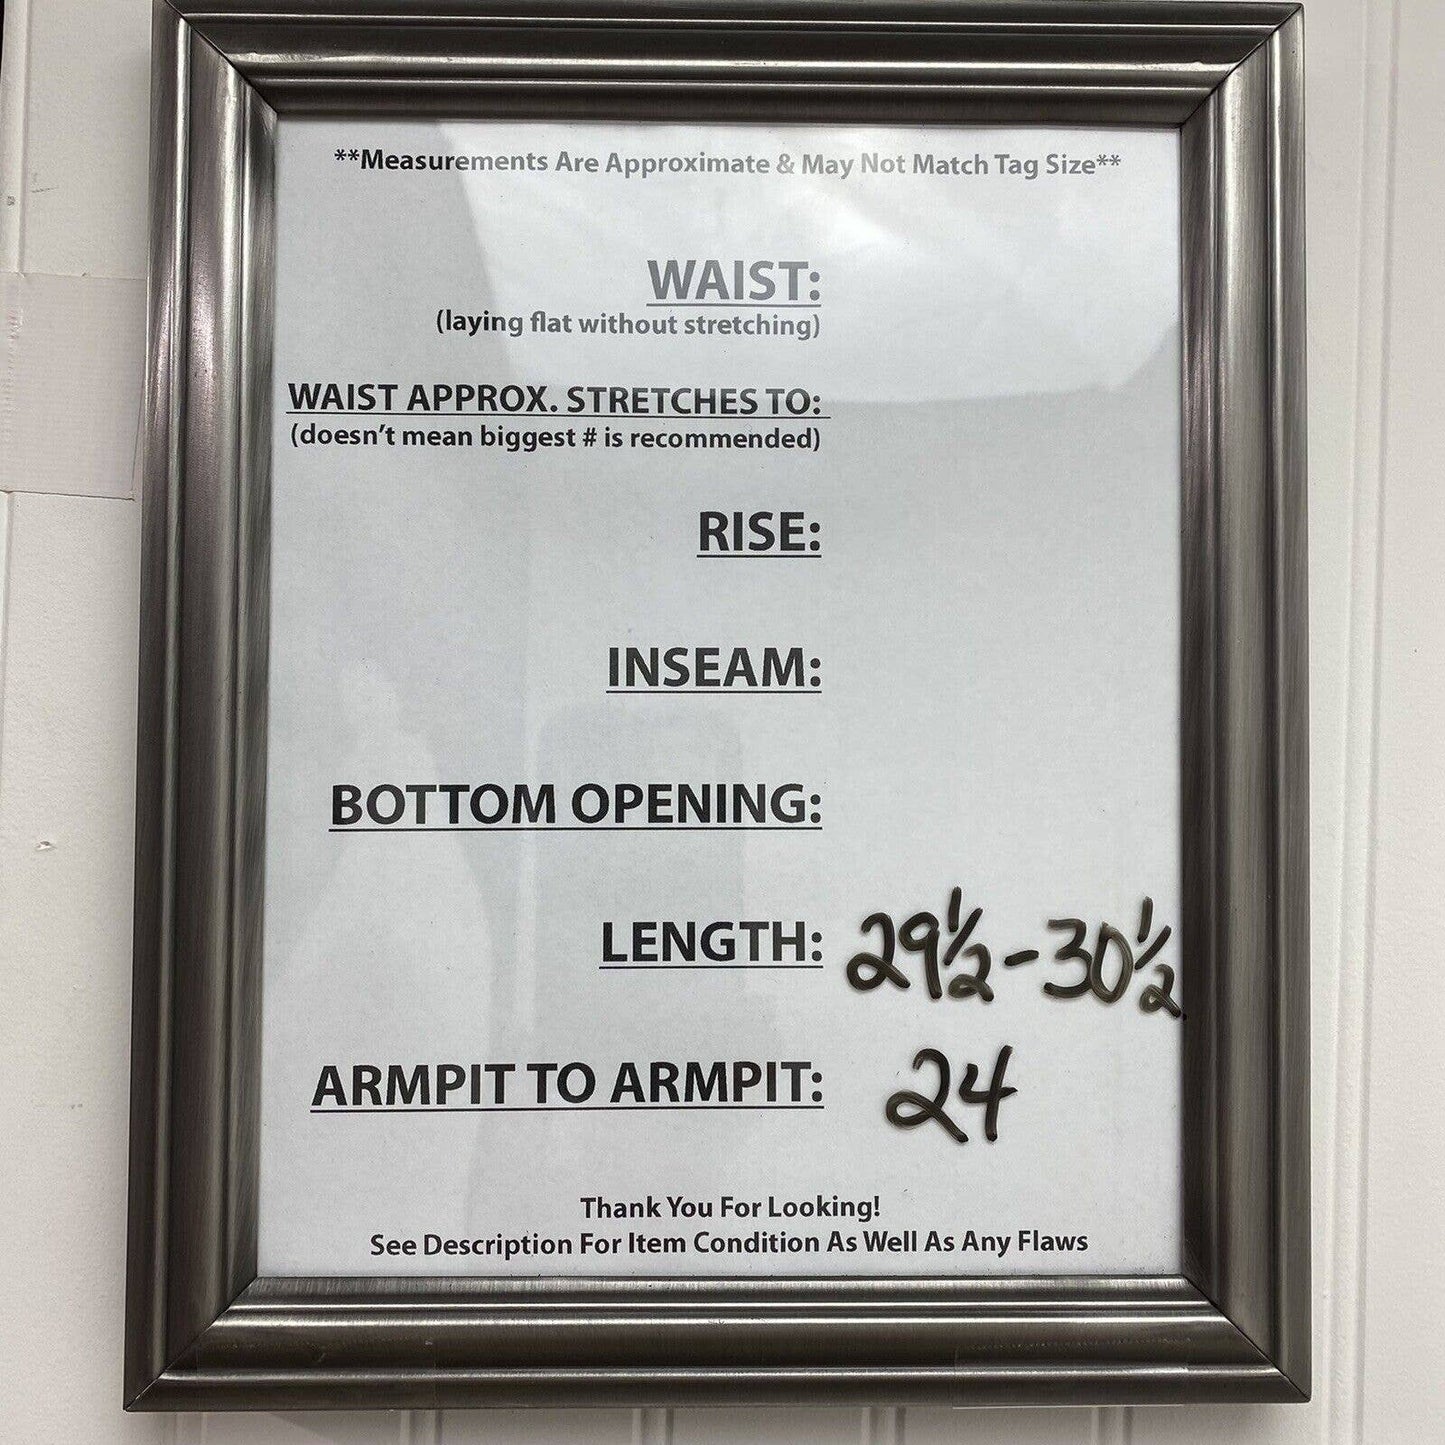 **Measurements Are Approximate & May Not Match Tag Size**
WAIST:
(laying flat without stretching)
WAIST APPROX. STRETCHES TO:
(doesn't mean biggest # is recommended)
RISE:
INSEAM:
BOTTOM OPENING:
LENGTH: 29½-30½
ARMPIT TO ARMPIT: 24
Thank You For Looking!
See Description For Item Condition As Well As Any Flaws